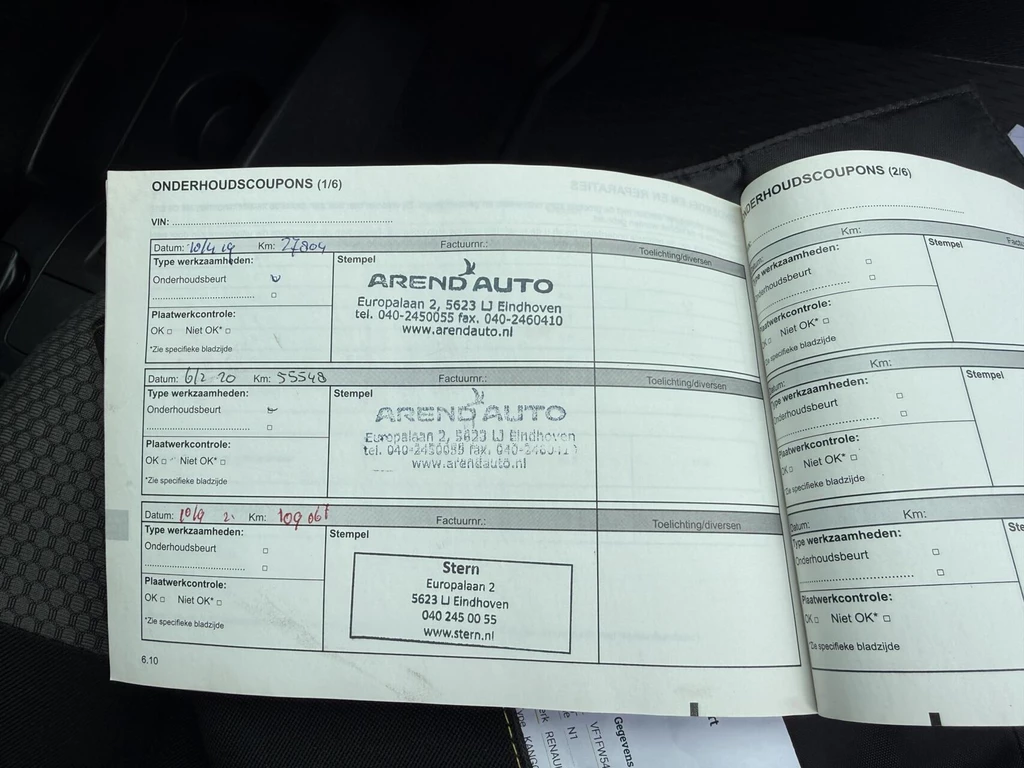 ONDERHOUDSCOUPONS (1/6)
VIN:
Datum: 10/4 19 Km: 27804 Factuurnr.: Toelichting/diversen
Type werkzaamheden: Stempel
Onderhoudsbeurt
AREND AUTO
Europalaan 2, 5623 LJ Eindhoven
tel. 040-2450055 fax. 040-2460410
www.arendauto.nl
Plaatwerkcontrole:
OK □ Niet OK* □
*Zie specifieke bladzijde
Datum: 6/2 20 Km: 55548 Factuurnr.: Toelichting/diversen
Type werkzaamheden: Stempel
Onderhoudsbeurt
AREND AUTO
Europalaan 2, 5623 LJ Eindhoven
tel. 040-2450055 fax. 040-246041
www.arendauto.nl
Plaatwerkcontrole:
OK □ Niet OK* □
*Zie specifieke bladzijde
Datum: Km: Factuurnr.: Toelichting/diversen
Type werkzaamheden: Stempel
Onderhoudsbeurt □
Stern
Europalaan 2
5623 LJ Eindhoven
040 245 00 55
www.stern.nl
Plaatwerkcontrole:
OK □ Niet OK* □
*Zie specifieke bladzijde
6.10
NDERHOUDSCOUPONS (2/6)
Km:
Type werkzaamheden: Stempel
Onderhoudsbeurt □
Plaatwerkcontrole:
OK □ Niet OK* □
*Zie specifieke bladzijde
Datum: Km:
Type werkzaamheden: Stempel
Onderhoudsbeurt □
Plaatwerkcontrole:
OK □ Niet OK* □
*Zie specifieke bladzijde
Datum: Km:
Type werkzaamheden:
Onderhoudsbeurt □
Plaatwerkcontrole:
OK □ Niet OK* □
*Zie specifieke bladzijde
Gegevens
VF1FW54
N1
RENAU
KANGO